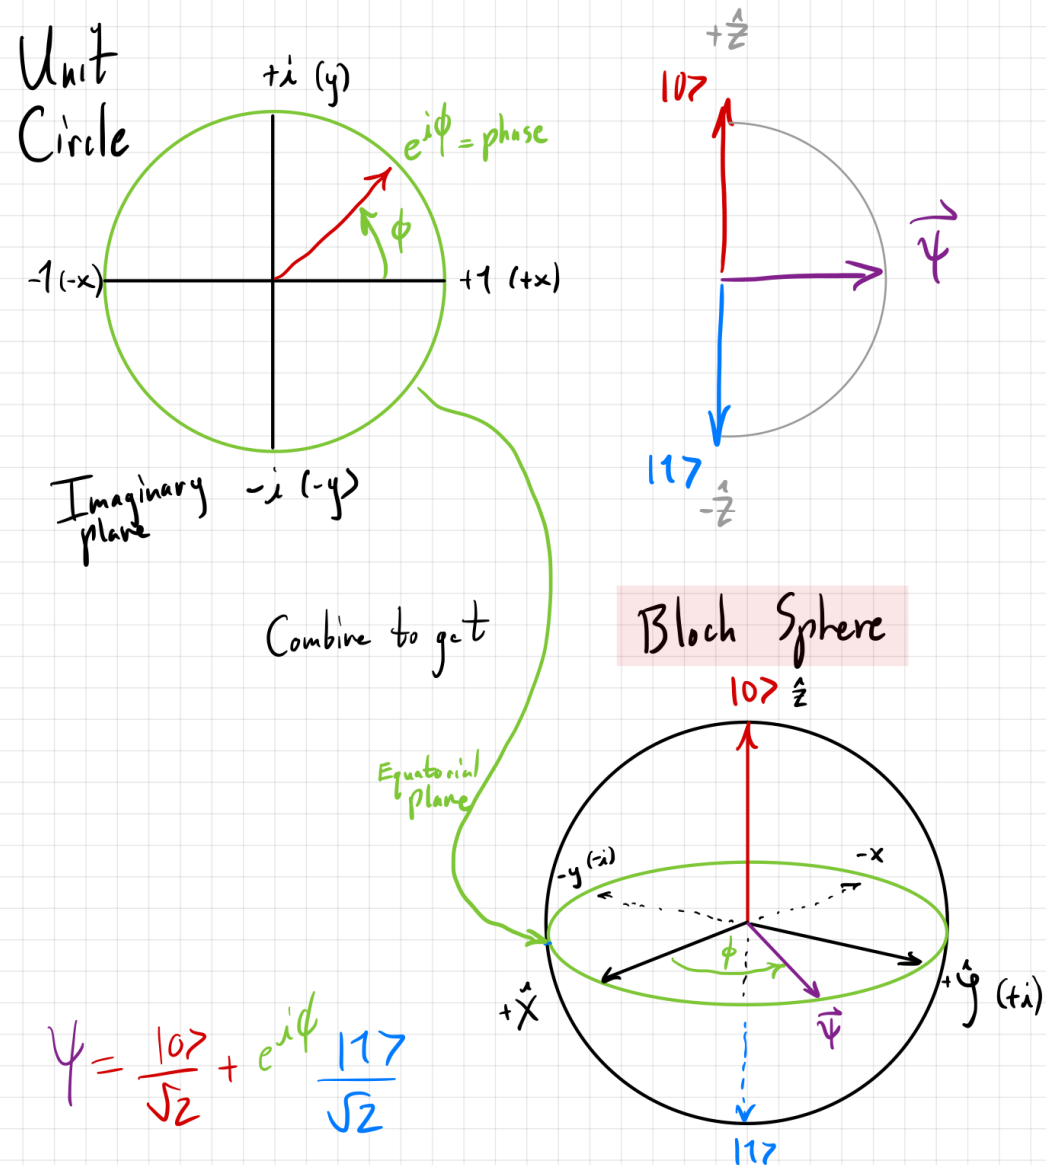 Unit
Circle
+i (y)
e^{iϕ} = phase
ϕ
-1 (-x)
+1 (+x)
-i (-y)
Imaginary
plane
+ẑ
|0>
ψ⃗
|1>
-ẑ
Combine to get
Bloch Sphere
|0> ẑ
Equatorial
plane
-y (-i)
-x
ϕ
+x̂
+ŷ (+i)
ψ⃗
|1>
ψ = |0>/√2 + e^{iϕ} |1>/√2